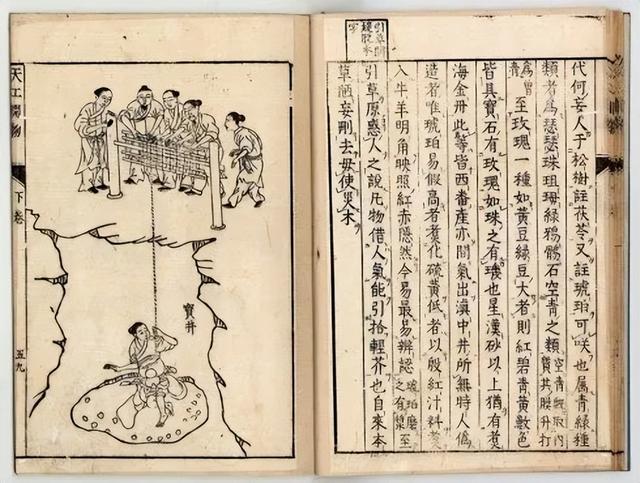 引草間
疑脫芥
字
代何妄人于松樹註茯苓又註琥珀可咲也属青綠種
類者爲瑟瑟珠珇珻綠鴉鶻石空青之類空青既取内質其膜升打
爲曾青至玫瑰一種如黃豆綠豆大者則紅碧青黃數色
皆具寶石有玫瑰如珠之有璣也星漢砂以上猶有煮
海金丹此等皆西番產亦間氣出滇中井所無時人僞
造者唯琥珀易假高者煮化硫黃低者以殷紅汁料煮
入牛羊明角映照紅赤隱然今易最易辨認琥珀磨之有漿至
引草原惑人之說凡物借人氣能引拾輕芥也自來本
草陋妄刪去毋使災木
寶井
天工開物
下卷
五九